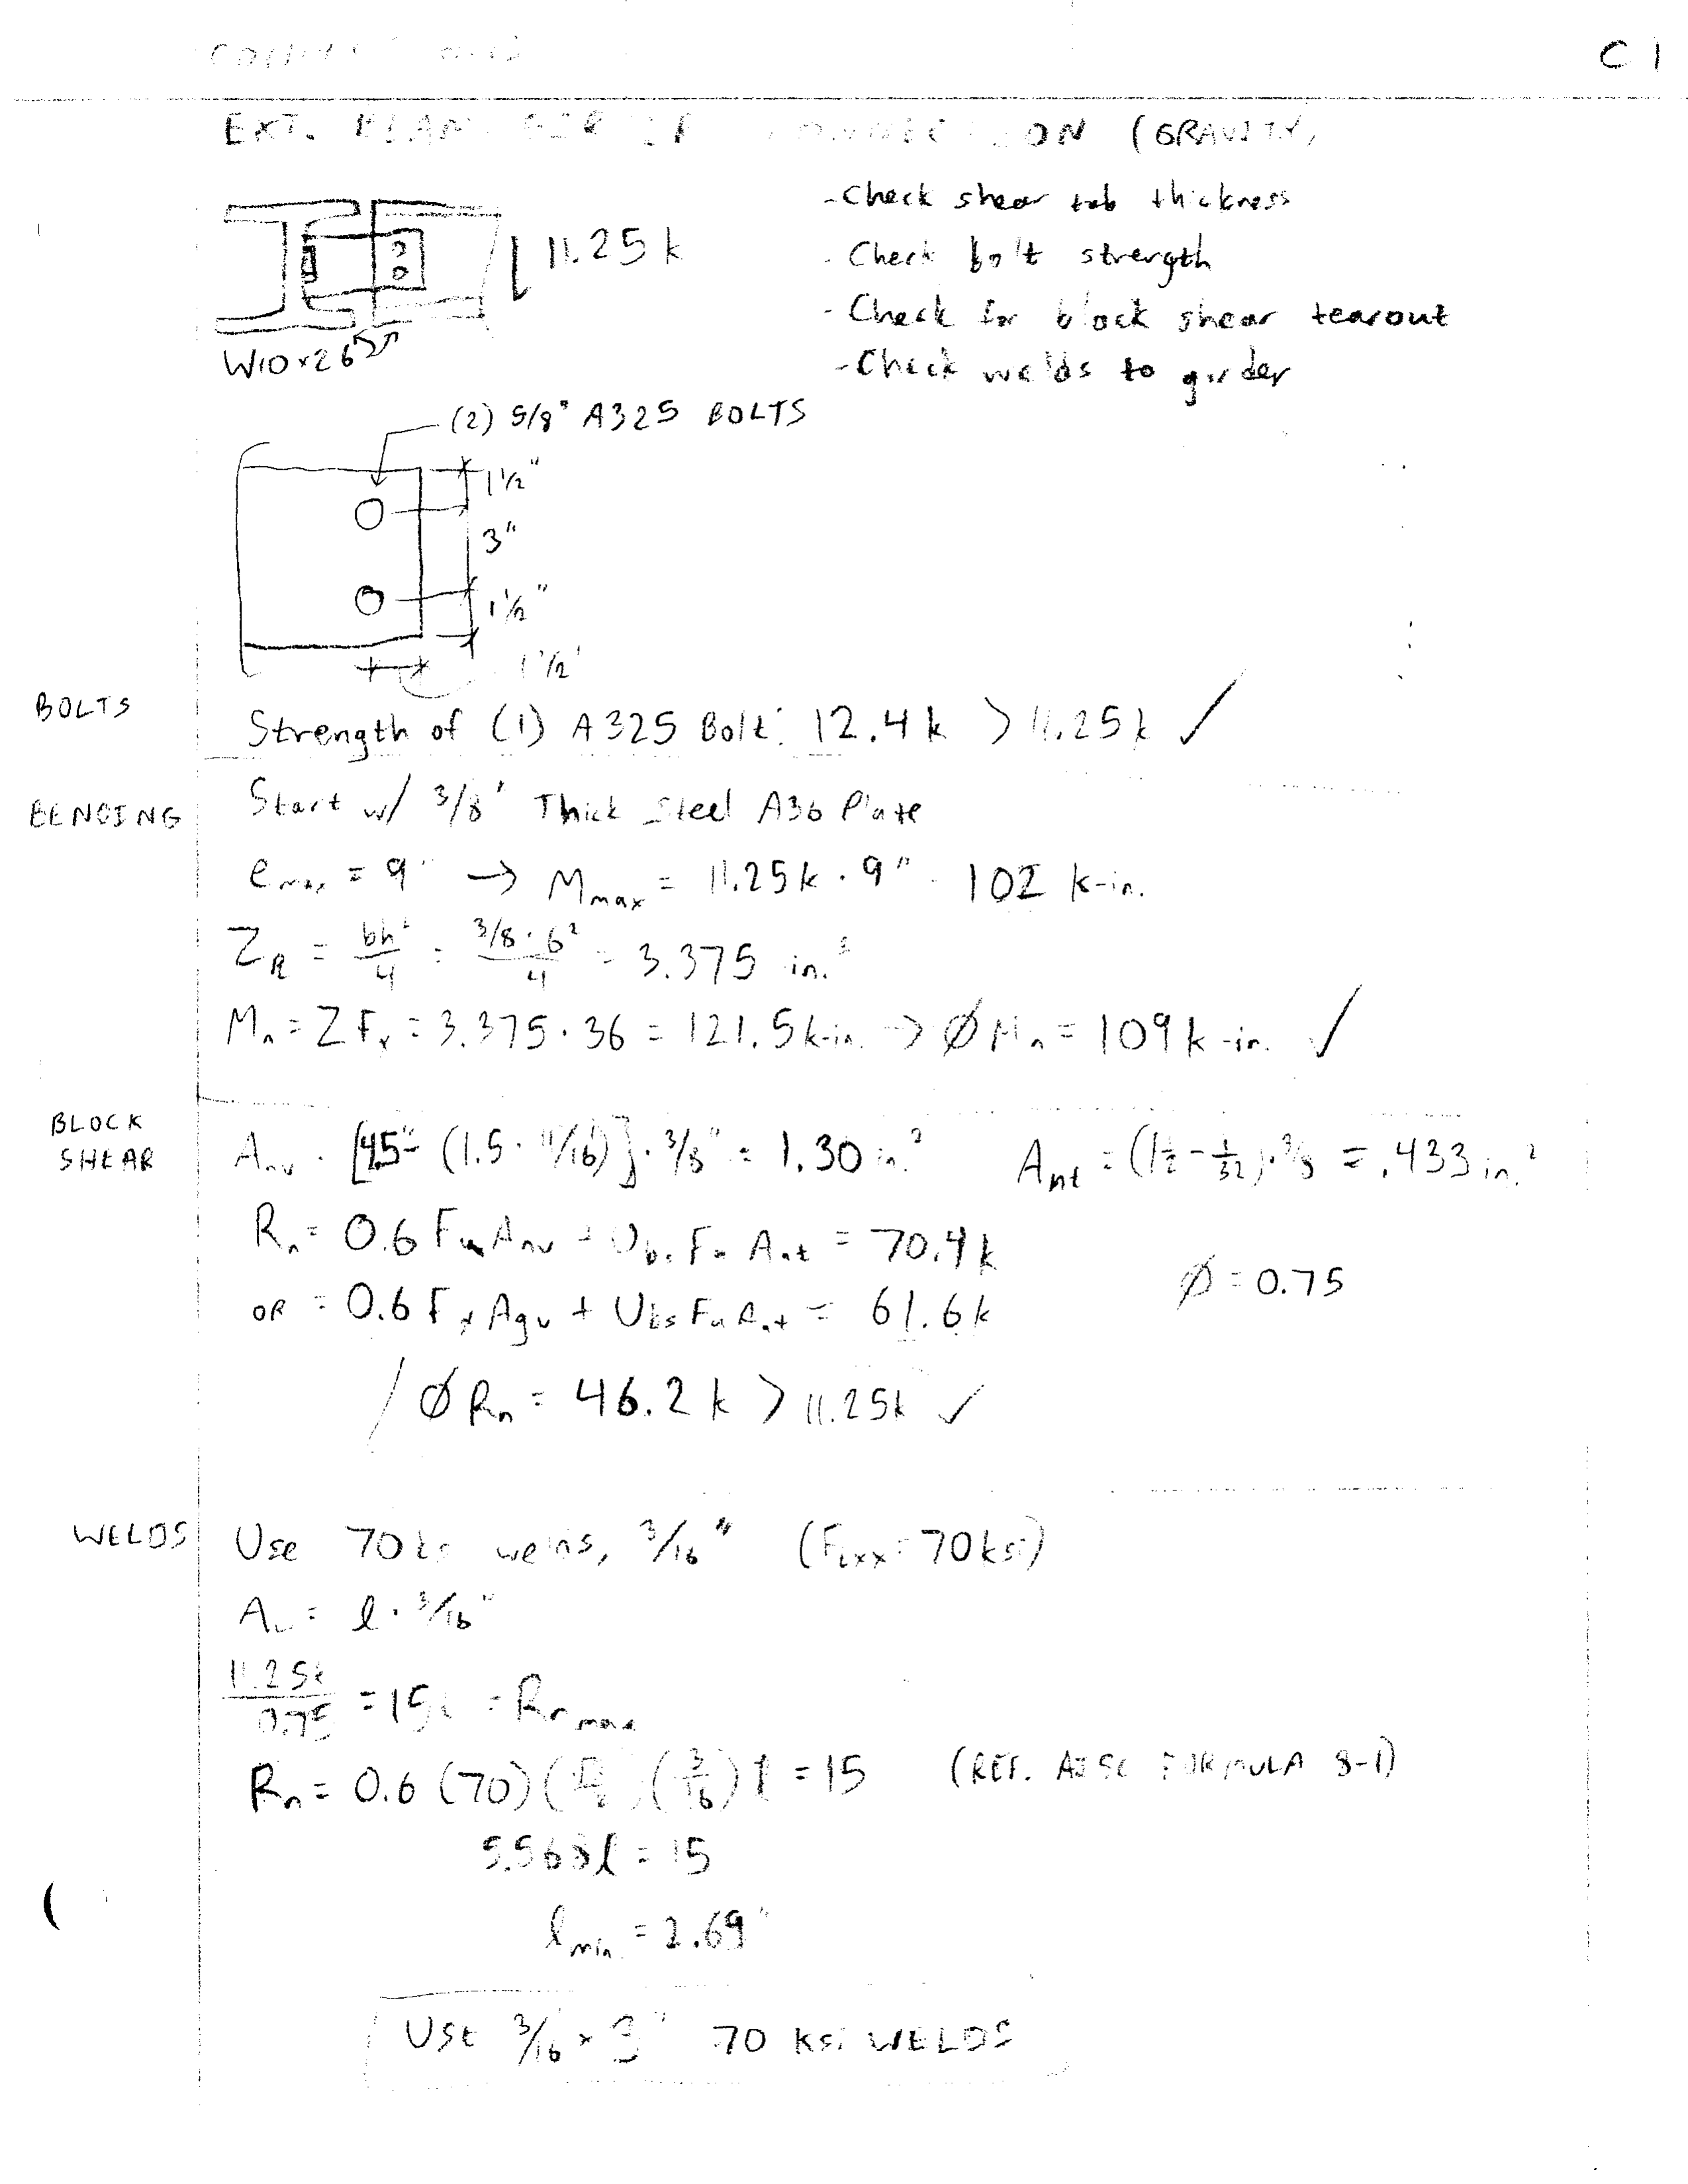 C1
EXT. CONNECTION (GRAVITY)
- Check shear tab thickness
- Check bolt strength
- Check for block shear tearout
- Check welds to girder
11.25 k
W10x26
(2) 5/8" A325 BOLTS
1½"
3"
1½"
1½"
BOLTS
Strength of (1) A325 Bolt: 12.4 k > 11.25k ✓
BENDING
Start w/ 3/8" Thick Steel A36 Plate
e_max = 9" → M_max = 11.25k · 9" = 102 k-in.
Z_R = bh²/4 = 3/8·6²/4 = 3.375 in.³
M_n = Z F_y = 3.375 · 36 = 121.5 k-in. → Ø M_n = 109 k-in. ✓
BLOCK
SHEAR
A_nv = [4.5" - (1.5 · 11/16)] · 3/8" = 1.30 in.² A_nt = (1½ - 11/32) · 3/8 = .433 in.²
R_n = 0.6 F_u A_nv + U_bs F_u A_nt = 70.4 k
OR = 0.6 F_y A_gv + U_bs F_u A_nt = 61.6 k
Ø = 0.75
Ø R_n = 46.2 k > 11.25k ✓
WELDS
Use 70 ksi welds, 3/16" (F_EXX = 70 ksi)
A_w = l · 3/16"
11.25k/0.75 = 15k = R_n max
R_n = 0.6 (70) (3/16) l = 15 (REF. AISC FORMULA 8-1)
5.568 l = 15
l_min. = 2.69"
USE 3/16 x 3" 70 KSI WELDS